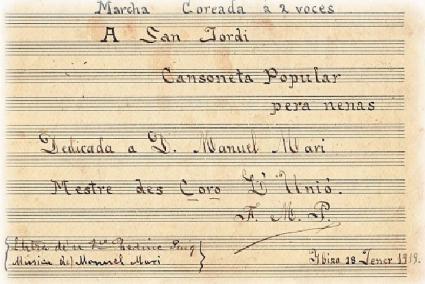 Marcha Coreada à 2 voces
A San Jordi
Cansoneta Popular
pera nenas
Dedicada a D. Manuel Mari
Mestre des Coro L'Unió.
F. M. P.
Lletra de Puig
Música de Manuel Mari
Ibiza 18 Jener 1919.